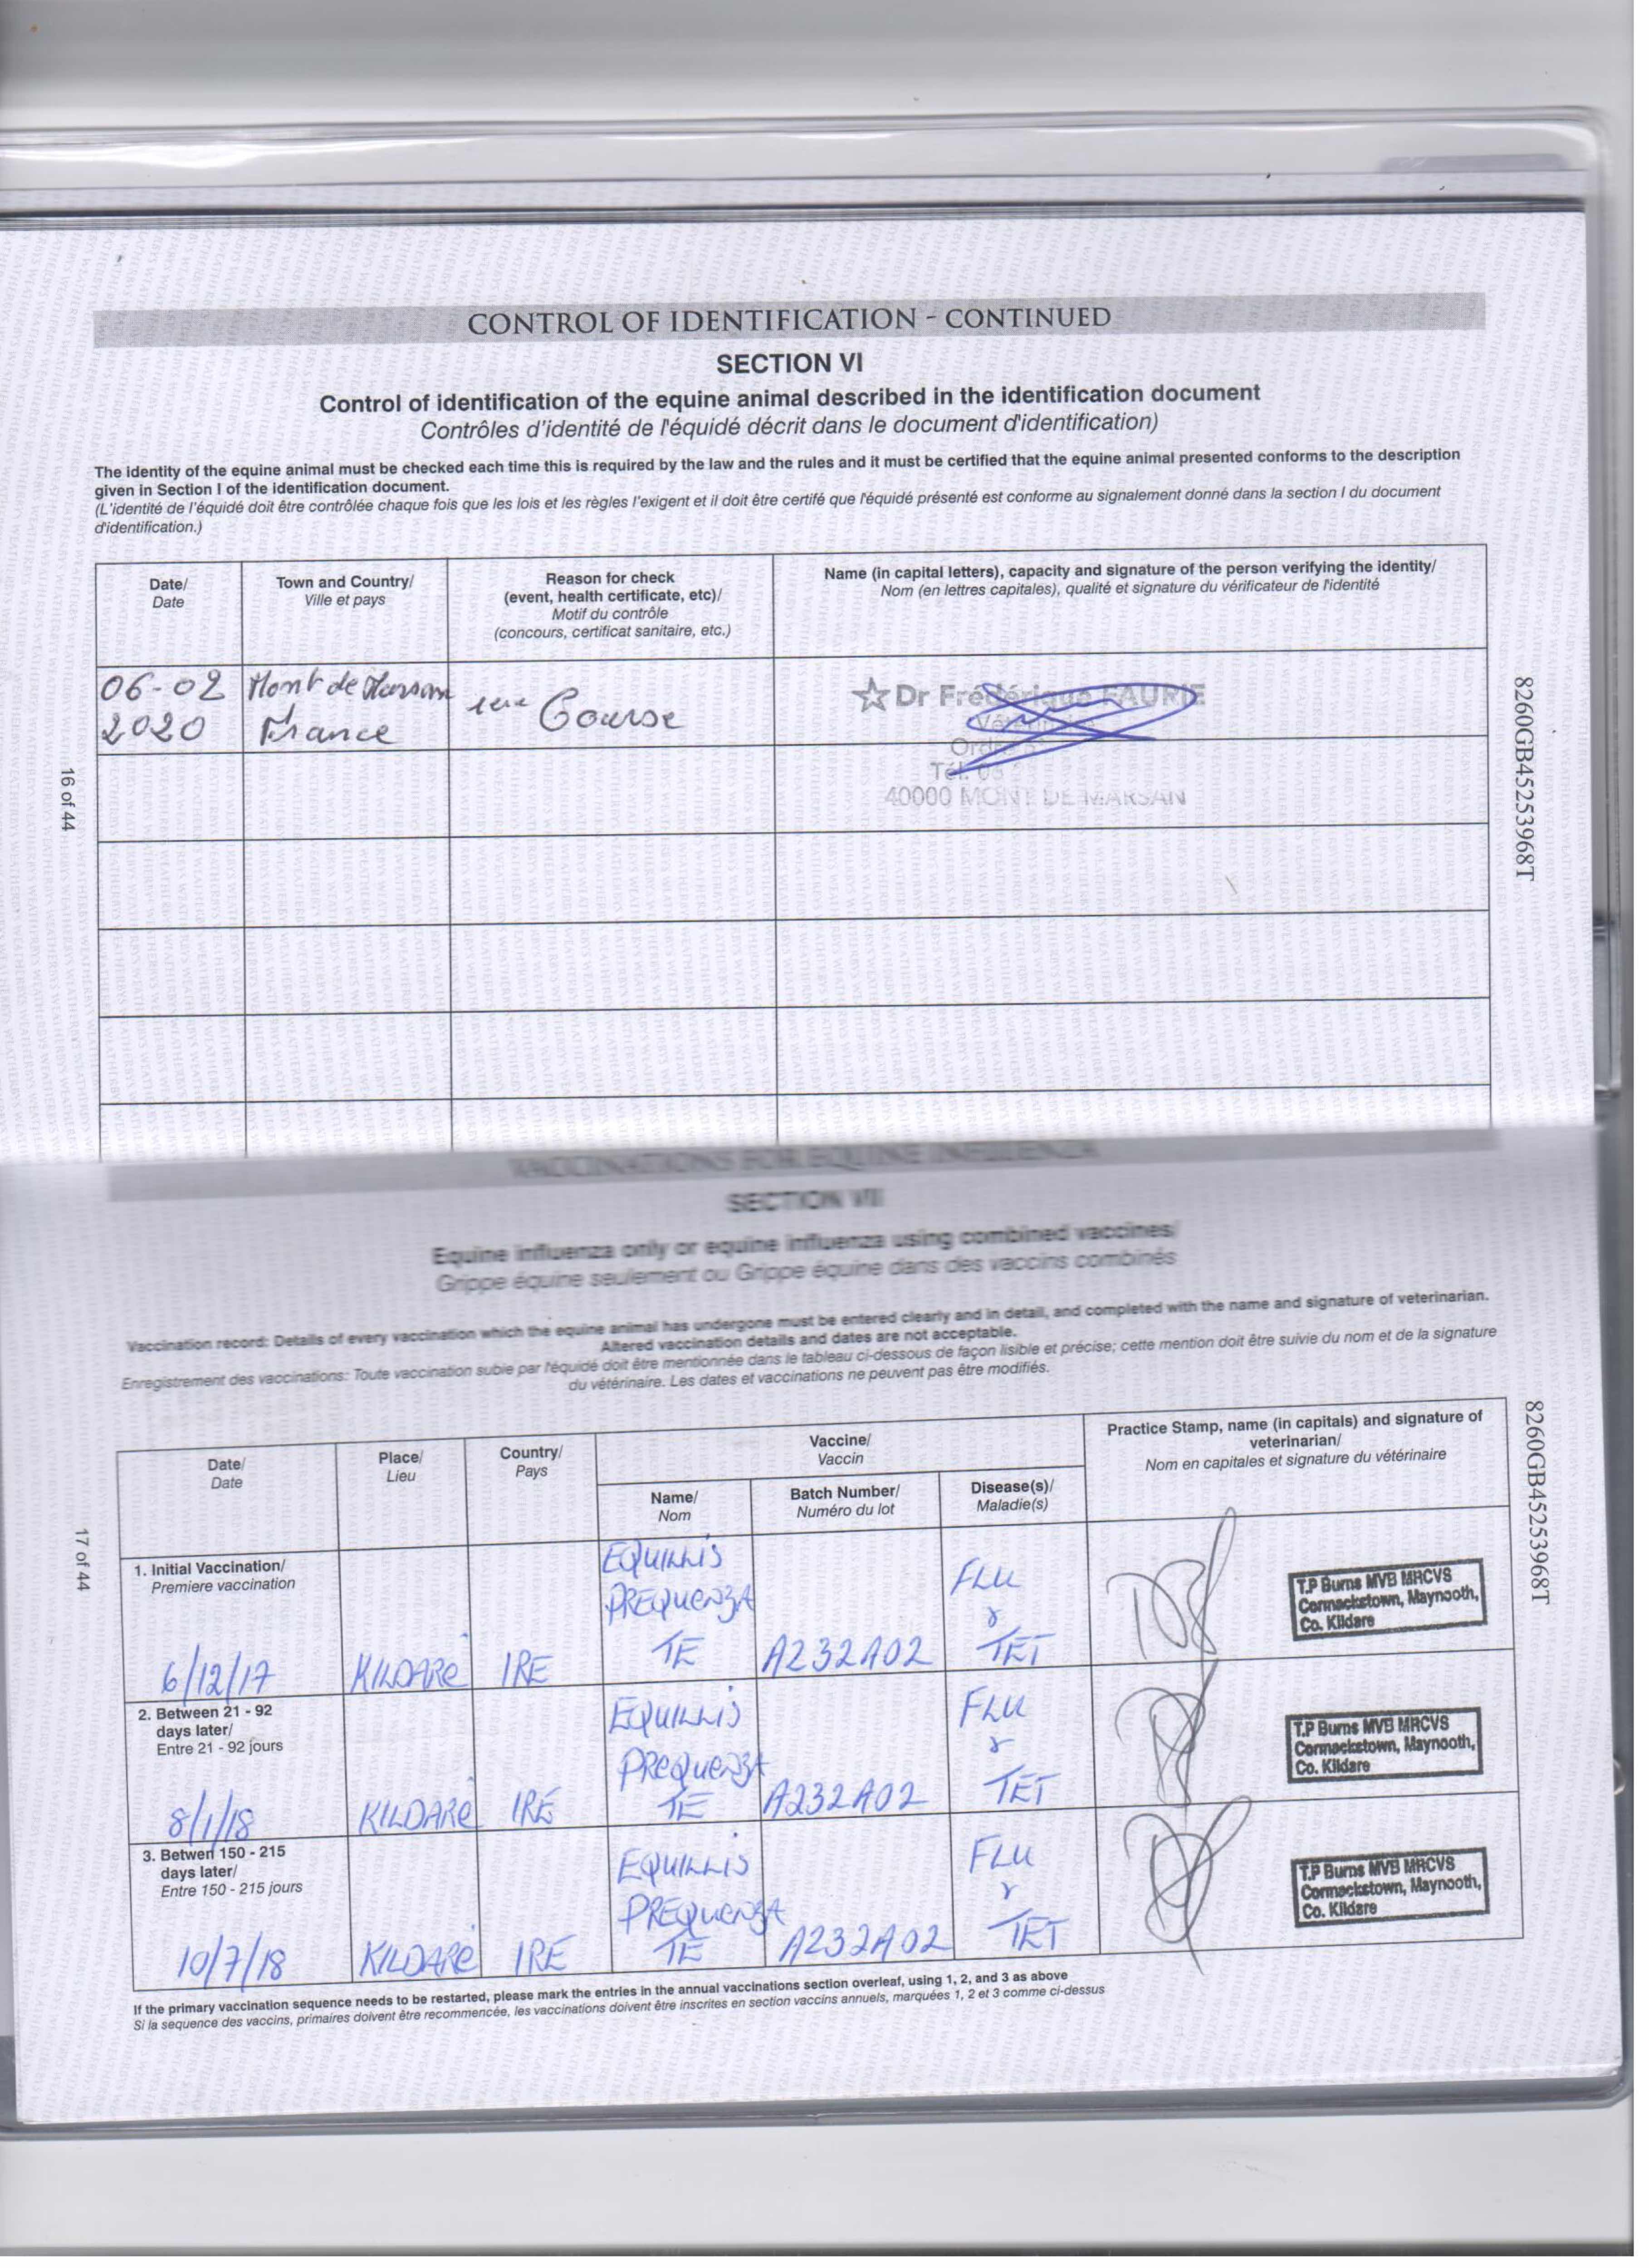 CONTROL OF IDENTIFICATION - CONTINUED
SECTION VI
Control of identification of the equine animal described in the identification document
Contrôles d'identité de l'équidé décrit dans le document d'identification)
The identity of the equine animal must be checked each time this is required by the law and the rules and it must be certified that the equine animal presented conforms to the description
given in Section I of the identification document.
(L'identité de l'équidé doit être contrôlée chaque fois que les lois et les règles l'exigent et il doit être certifé que l'équidé présenté est conforme au signalement donné dans la section I du document
d'identification.)
Date/
Date
Town and Country/
Ville et pays
Reason for check
(event, health certificate, etc)/
Motif du contrôle
(concours, certificat sanitaire, etc.)
Name (in capital letters), capacity and signature of the person verifying the identity/
Nom (en lettres capitales), qualité et signature du vérificateur de l'identité
06-02
2020
Mont de Marsan
France
1ere Course
Dr Frédérique FAURIE
Vétérinaire
Tél. 05
40000 MONT DE MARSAN
16 of 44
8260GB45253968T
VACCINATIONS FOR EQUINE INFLUENZA
SECTION VII
Equine influenza only or equine influenza using combined vaccines/
Grippe équine seulement ou Grippe équine dans des vaccins combinés
Vaccination record: Details of every vaccination which the equine animal has undergone must be entered clearly and in detail, and completed with the name and signature of veterinarian.
Altered vaccination details and dates are not acceptable.
Enregistrement des vaccinations: Toute vaccination subie par l'équidé doit être mentionnée dans le tableau ci-dessous de façon lisible et précise; cette mention doit être suivie du nom et de la signature
du vétérinaire. Les dates et vaccinations ne peuvent pas être modifiés.
Date/
Date
Place/
Lieu
Country/
Pays
Vaccine/
Vaccin
Name/
Nom
Batch Number/
Numéro du lot
Disease(s)/
Maladie(s)
Practice Stamp, name (in capitals) and signature of
veterinarian/
Nom en capitales et signature du vétérinaire
1. Initial Vaccination/
Premiere vaccination
6/12/17
KILDARE
IRE
EQUILLIS
PREQUENZA
TE
A232A02
FLU
&
TET
T.P Burns MVB MRCVS
Cormackstown, Maynooth,
Co. Kildare
2. Between 21 - 92
days later/
Entre 21 - 92 jours
8/1/18
KILDARE
IRE
EQUILLIS
PREQUENZA
TE
A232A02
FLU
&
TET
T.P Burns MVB MRCVS
Cormackstown, Maynooth,
Co. Kildare
3. Betwen 150 - 215
days later/
Entre 150 - 215 jours
10/7/18
KILDARE
IRE
EQUILLIS
PREQUENZA
TE
A232A02
FLU
&
TET
T.P Burns MVB MRCVS
Cormackstown, Maynooth,
Co. Kildare
If the primary vaccination sequence needs to be restarted, please mark the entries in the annual vaccinations section overleaf, using 1, 2, and 3 as above
Si la sequence des vaccins, primaires doivent être recommencée, les vaccinations doivent être inscrites en section vaccins annuels, marquées 1, 2 et 3 comme ci-dessus
17 of 44
8260GB45253968T